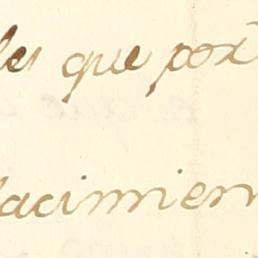 les que por
lacimien